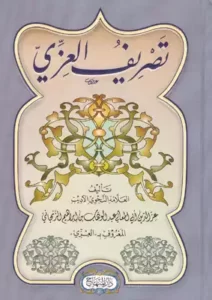 تصريف العزي
تأليف
العلامة النحوي الأديب
عز الدين أبي الفضائل عبد الوهاب بن إبراهيم الزنجاني
المعروف بـ «العزي»